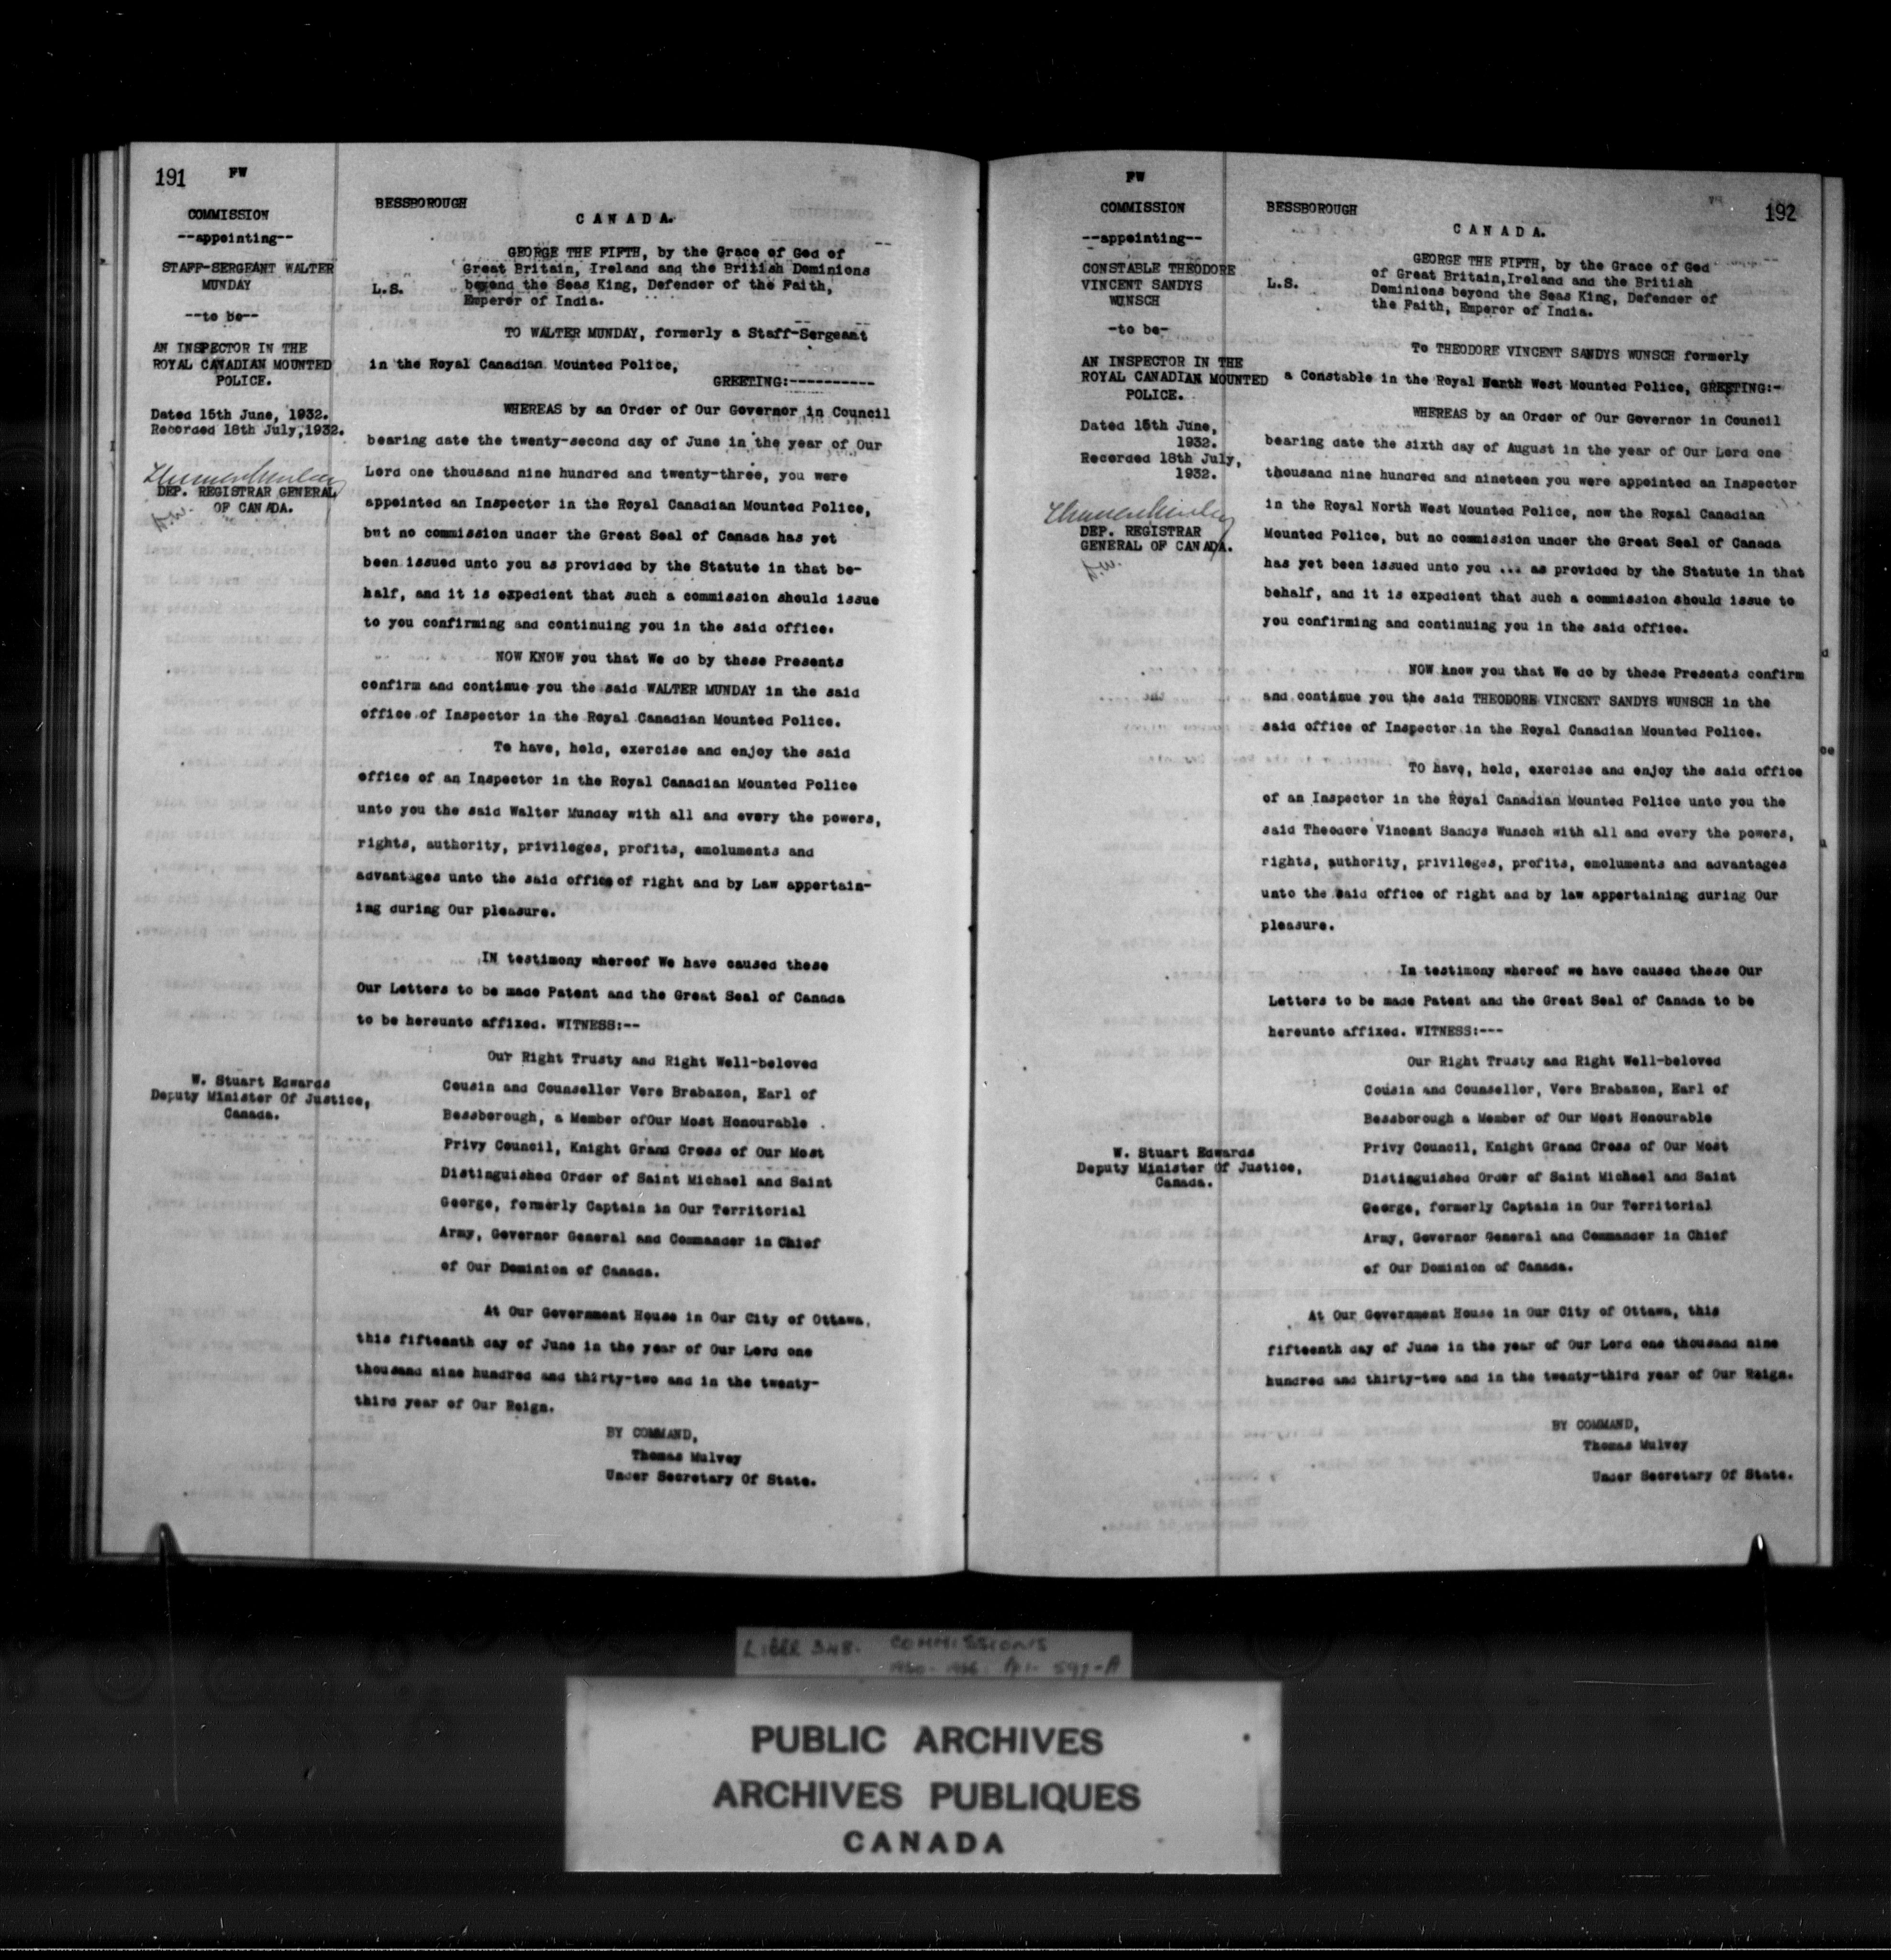 191 FW
COMMISSION
--appointing--
STAFF-SERGEANT WALTER
MUNDAY
--to be--
AN INSPECTOR IN THE
ROYAL CANADIAN MOUNTED
POLICE.
Dated 15th June, 1932.
Recorded 18th July,1932.
DEP. REGISTRAR GENERAL
OF CANADA.
W. Stuart Edwards
Deputy Minister Of Justice,
Canada.
BESSBOROUGH
CANADA.
L.S.
GEORGE THE FIFTH, by the Grace of God of
Great Britain, Ireland and the British Dominions
beyond the Seas King, Defender of the Faith,
Emperor of India.
TO WALTER MUNDAY, formerly a Staff-Sergeant
in the Royal Canadian Mounted Police,
GREETING:-----------
WHEREAS by an Order of Our Governor in Council
bearing date the twenty-second day of June in the year of Our
Lord one thousand nine hundred and twenty-three, you were
appointed an Inspector in the Royal Canadian Mounted Police,
but no commission under the Great Seal of Canada has yet
been issued unto you as provided by the Statute in that be-
half, and it is expedient that such a commission should issue
to you confirming and continuing you in the said office.
NOW KNOW you that We do by these Presents
confirm and continue you the said WALTER MUNDAY in the said
office of Inspector in the Royal Canadian Mounted Police.
To have, hold, exercise and enjoy the said
office of an Inspector in the Royal Canadian Mounted Police
unto you the said Walter Munday with all and every the powers,
rights, authority, privileges, profits, emoluments and
advantages unto the said office of right and by Law appertain-
ing during Our pleasure.
IN testimony whereof We have caused these
Our Letters to be made Patent and the Great Seal of Canada
to be hereunto affixed. WITNESS:--
Our Right Trusty and Right Well-beloved
Cousin and Counseller Vere Brabazon, Earl of
Bessborough, a Member ofOur Most Honourable
Privy Council, Knight Grand Cross of Our Most
Distinguished Order of Saint Michael and Saint
George, formerly Captain in Our Territorial
Army, Governor General and Commander in Chief
of Our Dominion of Canada.
At Our Government House in Our City of Ottawa,
this fifteenth day of June in the year of Our Lord one
thousand nine hundred and thirty-two and in the twenty-
third year of Our Reign.
BY COMMAND,
Thomas Mulvey
Under Secretary Of State.
FW
COMMISSION
--appointing--
CONSTABLE THEODORE
VINCENT SANDYS
WUNSCH
-to be-
AN INSPECTOR IN THE
ROYAL CANADIAN MOUNTED
POLICE.
Dated 15th June,
1932.
Recorded 18th July,
1932.
DEP. REGISTRAR
GENERAL OF CANADA.
W. Stuart Edwards
Deputy Minister Of Justice,
Canada.
BESSBOROUGH
192
CANADA.
L.S.
GEORGE THE FIFTH, by the Grace of God
of Great Britain,Ireland and the British
Dominions beyond the Seas King, Defender of
the Faith, Emperor of India.
To THEODORE VINCENT SANDYS WUNSCH formerly
a Constable in the Royal North West Mounted Police, GREETING:-
WHEREAS by an Order of Our Governor in Council
bearing date the sixth day of August in the year of Our Lord one
thousand nine hundred and nineteen you were appointed an Inspector
in the Royal North West Mounted Police, now the Royal Canadian
Mounted Police, but no commission under the Great Seal of Canada
has yet been issued unto you ... as provided by the Statute in that
behalf, and it is expedient that such a commission should issue to
you confirming and continuing you in the said office.
NOW know you that We do by these Presents confirm
and continue you the said THEODORE VINCENT SANDYS WUNSCH in the
said office of Inspector in the Royal Canadian Mounted Police.
TO have, hold, exercise and enjoy the said office
of an Inspector in the Royal Canadian Mounted Police unto you the
said Theodore Vincent Sandys Wunsch with all and every the powers,
rights, authority, privileges, profits, emoluments and advantages
unto the said office of right and by law appertaining during Our
pleasure.
In testimony whereof we have caused these Our
Letters to be made Patent and the Great Seal of Canada to be
hereunto affixed. WITNESS:---
Our Right Trusty and Right Well-beloved
Cousin and Counseller, Vere Brabazon, Earl of
Bessborough a Member of Our Most Honourable
Privy Council, Knight Grand Cross of Our Most
Distinguished Order of Saint Michael and Saint
George, formerly Captain in Our Territorial
Army, Governor General and Commander in Chief
of Our Dominion of Canada.
At Our Government House in Our City of Ottawa, this
fifteenth day of June in the year of Our Lord one thousand nine
hundred and thirty-two and in the twenty-third year of Our Reign.
BY COMMAND,
Thomas Mulvey
Under Secretary Of State.
LIBER 348. COMMISSIONS
PUBLIC ARCHIVES
ARCHIVES PUBLIQUES
CANADA